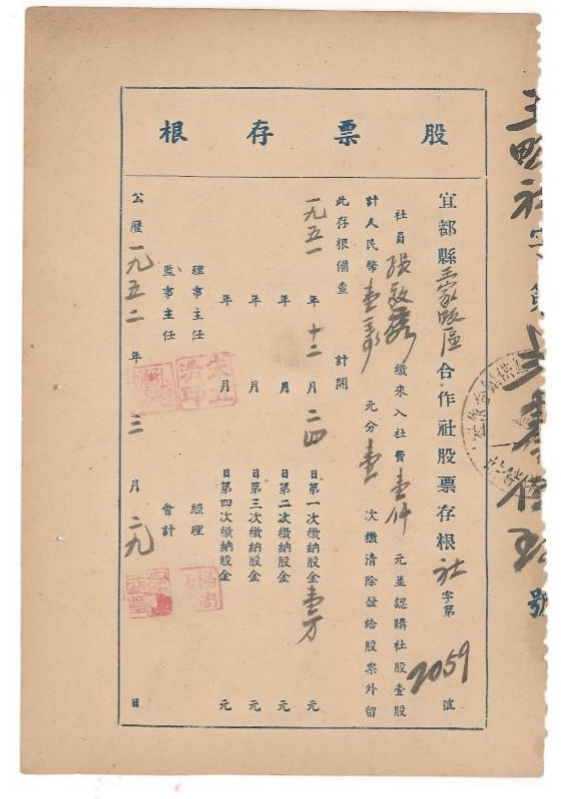 股票存根
宜都縣王家畈區合作社股票存根社字第2059號
社員張敦秀繳來入社費壹仟元並認購社股壹股
計人民幣壹萬元分壹次繳清除發給股票外留
此存根備查 計開
一九五一年十二月二四日第一次繳納股金壹万元
年 月 日第二次繳納股金 元
年 月 日第三次繳納股金 元
年 月 日第四次繳納股金 元
理事主任 經理
監事主任 會計
公歷一九五二年三月二九日
號